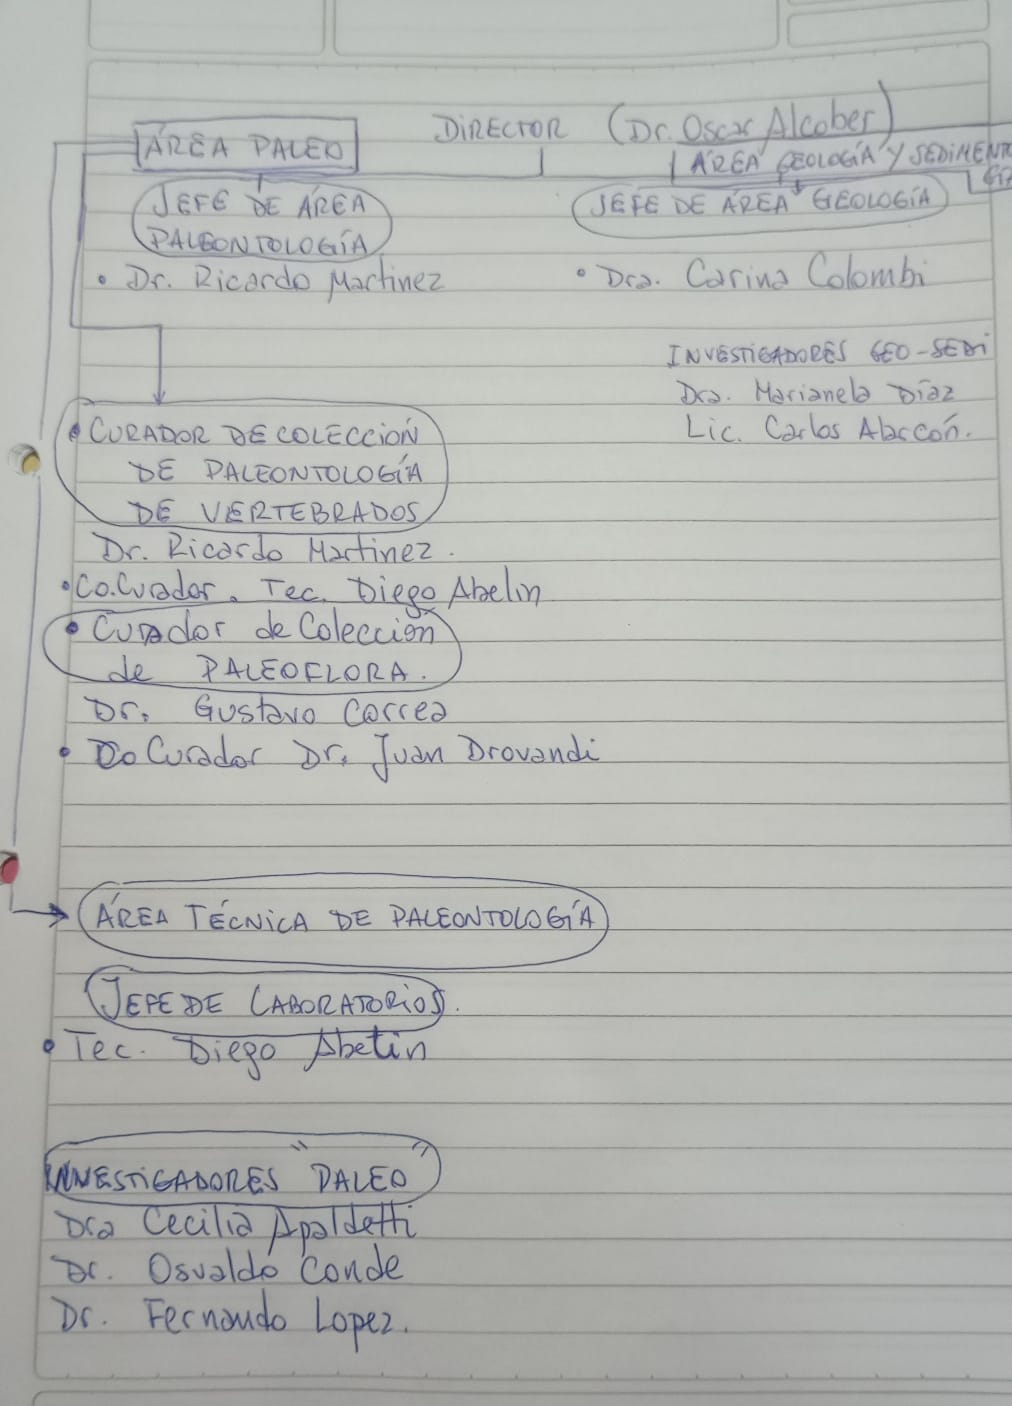 DIRECTOR (Dr. Oscar Alcober)
ÁREA PALEO
ÁREA GEOLOGÍA Y SEDIMENTO
GÍA
JEFE DE ÁREA
PALEONTOLOGÍA
JEFE DE ÁREA GEOLOGÍA
• Dr. Ricardo Martinez
• Dra. Carina Colombi
INVESTIGADORES GEO-SEDI
Dra. Marianela Díaz
Lic. Carlos Abarcón.
• CURADOR DE COLECCIÓN
DE PALEONTOLOGÍA
DE VERTEBRADOS
Dr. Ricardo Martinez.
• Co.Curador. Tec. Diego Abelin
• Curador de Colección
de PALEOFLORA.
Dr. Gustavo Correa
• Co Curador Dr. Juan Drovandi
ÁREA TÉCNICA DE PALEONTOLOGÍA
JEFE DE LABORATORIOS.
• Tec. Diego Abelin
INVESTIGADORES "PALEO"
Dra Cecilia Apaldetti
Dr. Osvaldo Conde
Dr. Fernando Lopez.